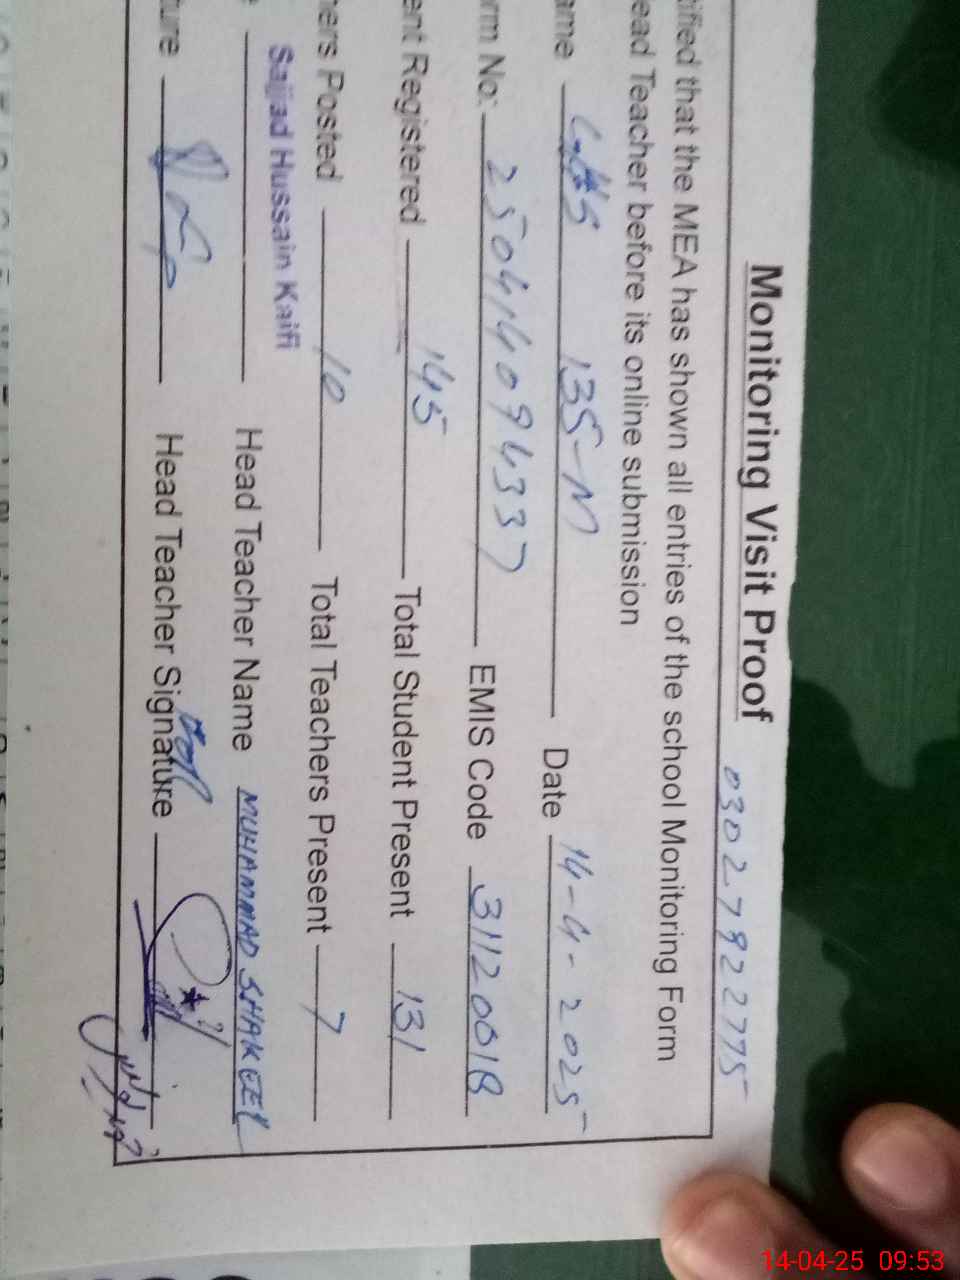 Monitoring Visit Proof 03027922775
ified that the MEA has shown all entries of the school Monitoring Form
ead Teacher before its online submission
ame 135-M Date 14-4-2025
rm No: 2504140943 37 EMIS Code 31120018
ent Registered 145 Total Student Present 131
hers Posted 10 Total Teachers Present 7
Sajjad Hussain Kaifi Head Teacher Name MUHAMMAD SHAKEEL
ture Head Teacher Signature
14-04-25 09:53